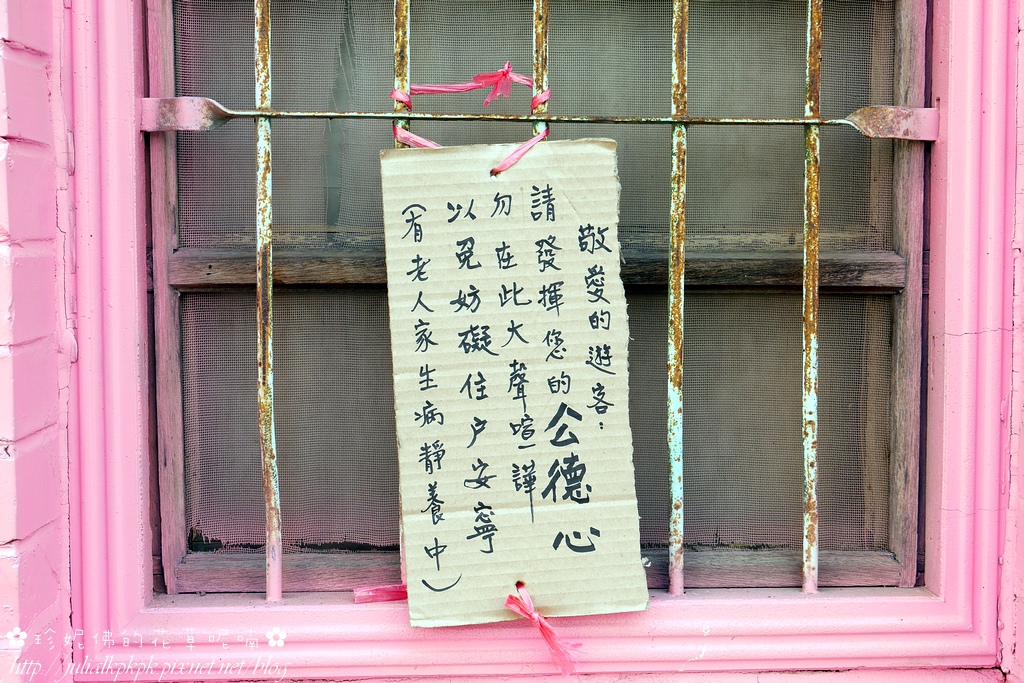 敬愛的遊客:
請發揮您的公德心
勿在此大聲喧譁
以免妨礙住戶安寧
(有老人家生病靜養中)
✿珍妮佛的花草呢喃✿
http://juliatkpkpk.pixnet.net/blog